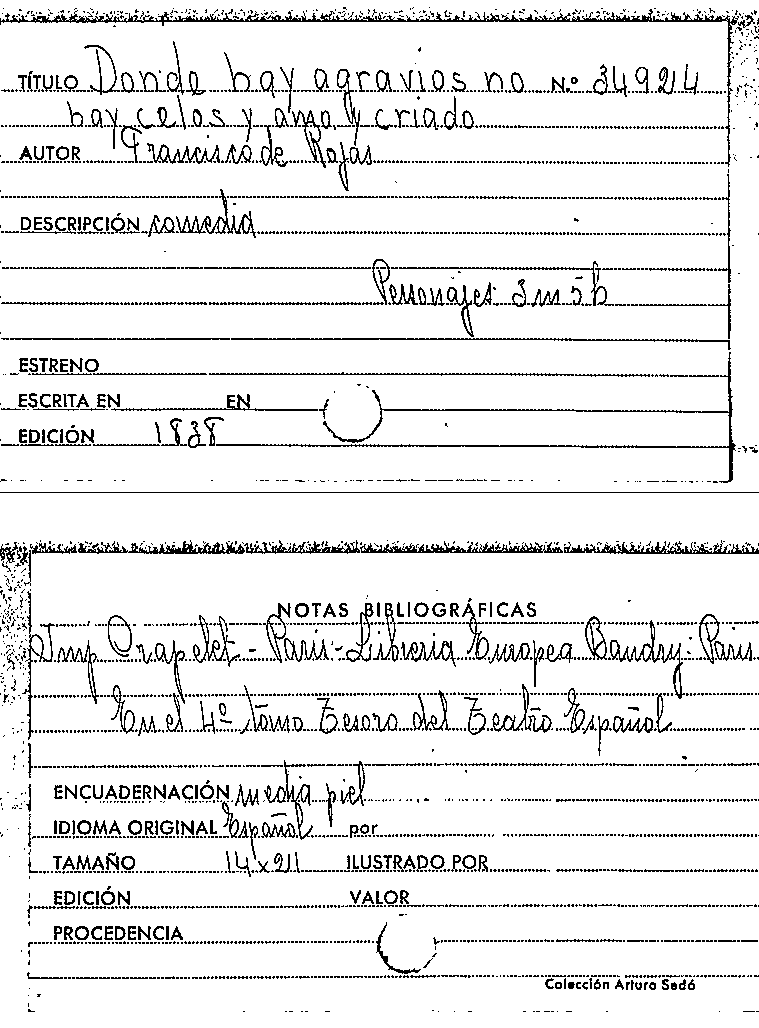 TÍTULO Donde hay agravios no N.º 34924
hay celos y amo y criado
AUTOR Francisco de Rojas
DESCRIPCIÓN comedia
Personajes 3m 5h
ESTRENO
ESCRITA EN EN
EDICIÓN 1838
NOTAS BIBLIOGRÁFICAS
Imp Crapelet - Paris - Libreria Europea Baudry: Paris
En el 4º tomo Tesoro del Teatro Español
ENCUADERNACIÓN media piel
IDIOMA ORIGINAL Español por
TAMAÑO 14 x 21 ILUSTRADO POR
EDICIÓN VALOR
PROCEDENCIA
Colección Arturo Sedó